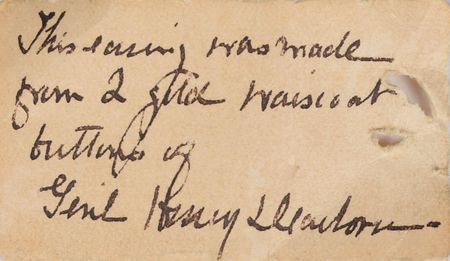 This earing was made
from 2 gold waiscoat
buttons of
Genl Henry Dearborn